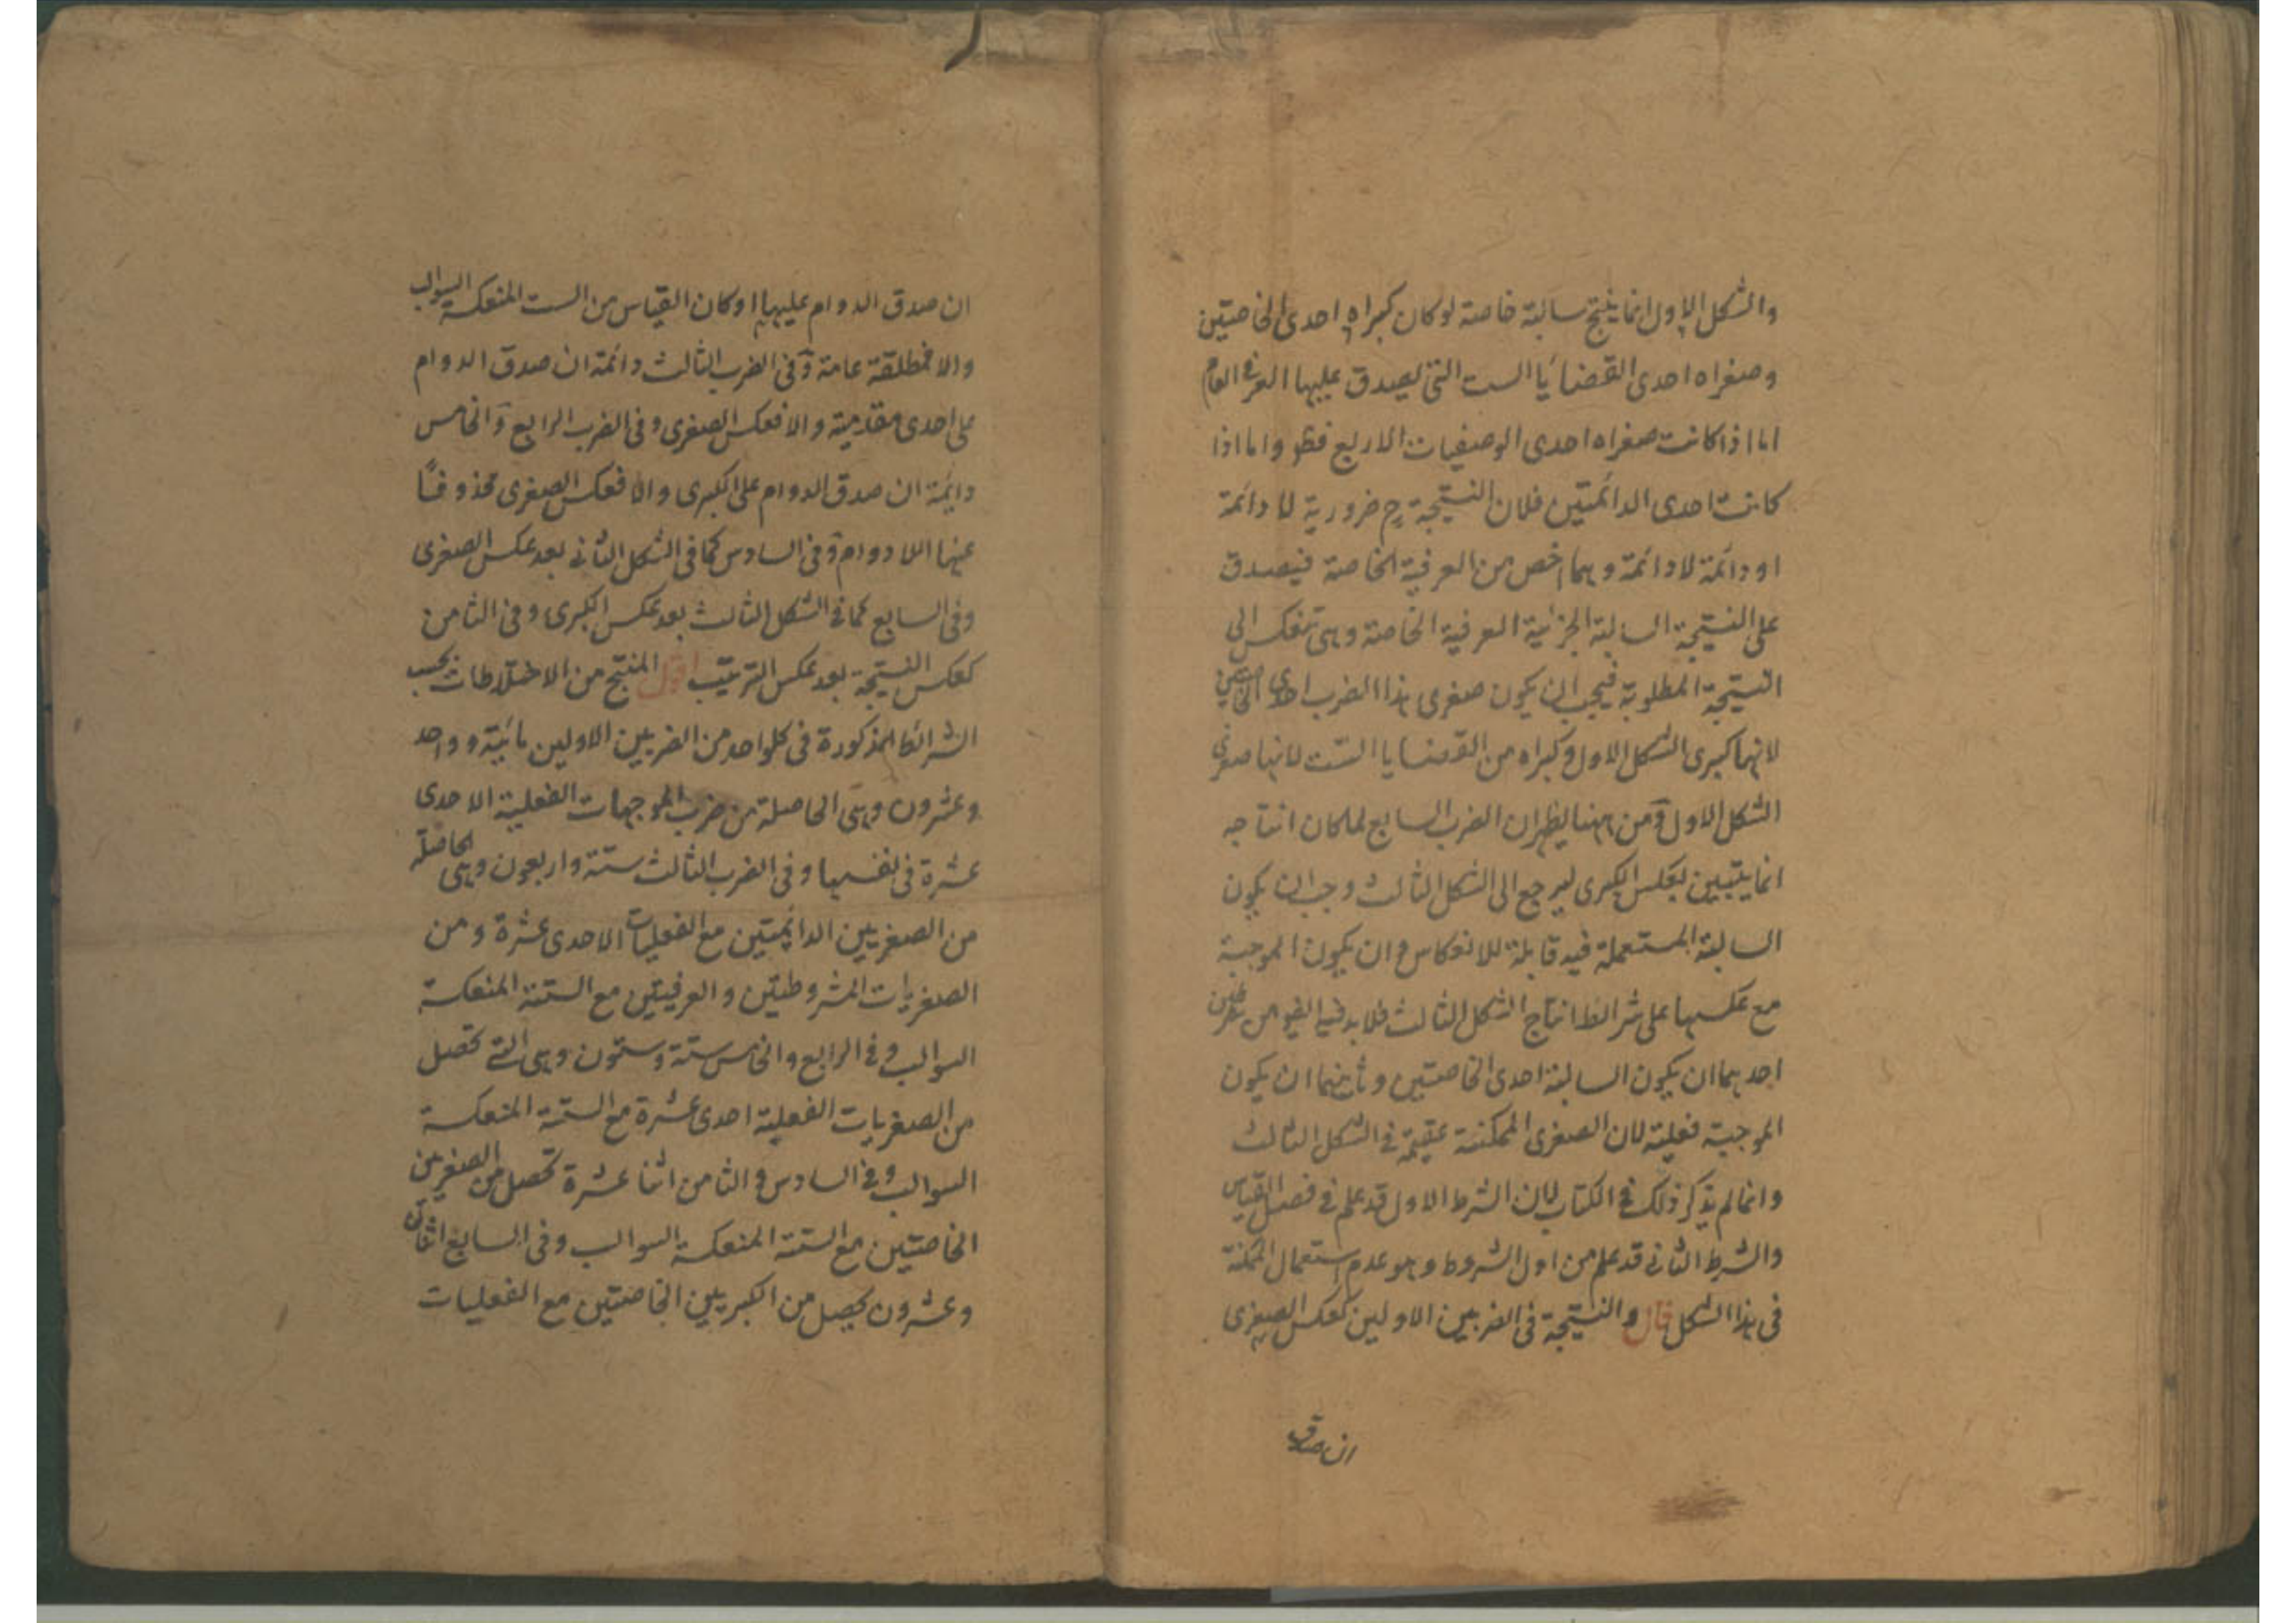 والشكل الاول انما ينتج سالبة خاصة لو كان كبراه احدى الخاصتين
وصغراه احدى القضايا الست التى يصدق عليها العرفى العام
اما اذا كانت صغراه احدى الوصفيات الاربع فظ واما اذا
كانت احدى الدائمتين فلان النتيجة ح ضرورية لا دائمة
او دائمة لا دائمة وهما اخص من العرفية الخاصة فيصدق
على النتيجة السالبة الجزئية العرفية الخاصة وهى تنعكس الى
النتيجة المطلوبة فيجب ان يكون صغرى هذا الضرب احدى الخاصتين
لانها كبرى الشكل الاول وكبراه من القضايا الست لانها صغرى
الشكل الاول ومن ههنا يظهر ان الضرب السابع لما كان انتاجه
انما يتبين بعكس الكبرى ليرجع الى الشكل الثالث وجب ان يكون
السالبة المستعملة فيه قابلة للانعكاس وان يكون الموجبة
مع عكسها على شرائط انتاج الشكل الثالث فلا بد فيه ايضو من شرطين
احدهما ان يكون السالبة احدى الخاصتين وثانيهما ان يكون
الموجبة فعلية لان الصغرى الممكنة عقيمة فى الشكل الثالث
وانما لم يذكر ذلك فى الكتاب لان الشرط الاول قد علم فى فصل القياس
والشرط الثانى قد علم من اول الشروط وهو عدم استعمال الممكنة
فى هذا الشكل قال والنتيجة فى الضربين الاولين كعكس الصغرى
ان صدق
ان صدق الدوام عليها او كان القياس من الست المنعكسة السوالب
والا فمطلقة عامة وفى الضرب الثالث دائمة ان صدق الدوام
على احدى مقدميته والا فعكس الصغرى وفى الضرب الرابع والخامس
دائمة ان صدق الدوام على الكبرى والا فعكس الصغرى محذوفًا
عنها اللا دوام وفى السادس كما فى الشكل الثانى بعد عكس الصغرى
وفى السابع كما فى الشكل الثالث بعد عكس الكبرى وفى الثامن
كعكس النتيجة بعد عكس الترتيب اقول المنتج من الاختلاطات بحسب
الشرائط المذكورة فى كلواحد من الضربين الاولين مائية وواحد
وعشرون وهى الحاصلة من ضرب الموجهات الفعلية الاحدى
عشرة فى نفسها وفى الضرب الثالث ستة واربعون وهى الحاصلة
من الصغريين الدائمتين مع الفعليات الاحدى عشرة ومن
الصغريات المشروطتين والعرفيتين مع الستة المنعكسة
السوالب وفى الرابع والخامس ستة وستون وهى التى تحصل
من الصغريات الفعلية احدى عشرة مع الستة المنعكسة
السوالب وفى السادس والثامن اثنا عشرة تحصل من الصغريين
الخاصتين مع الستة المنعكسة السوالب وفى السابع اثنان
وعشرون يحصل من الكبريين الخاصتين مع الفعليات